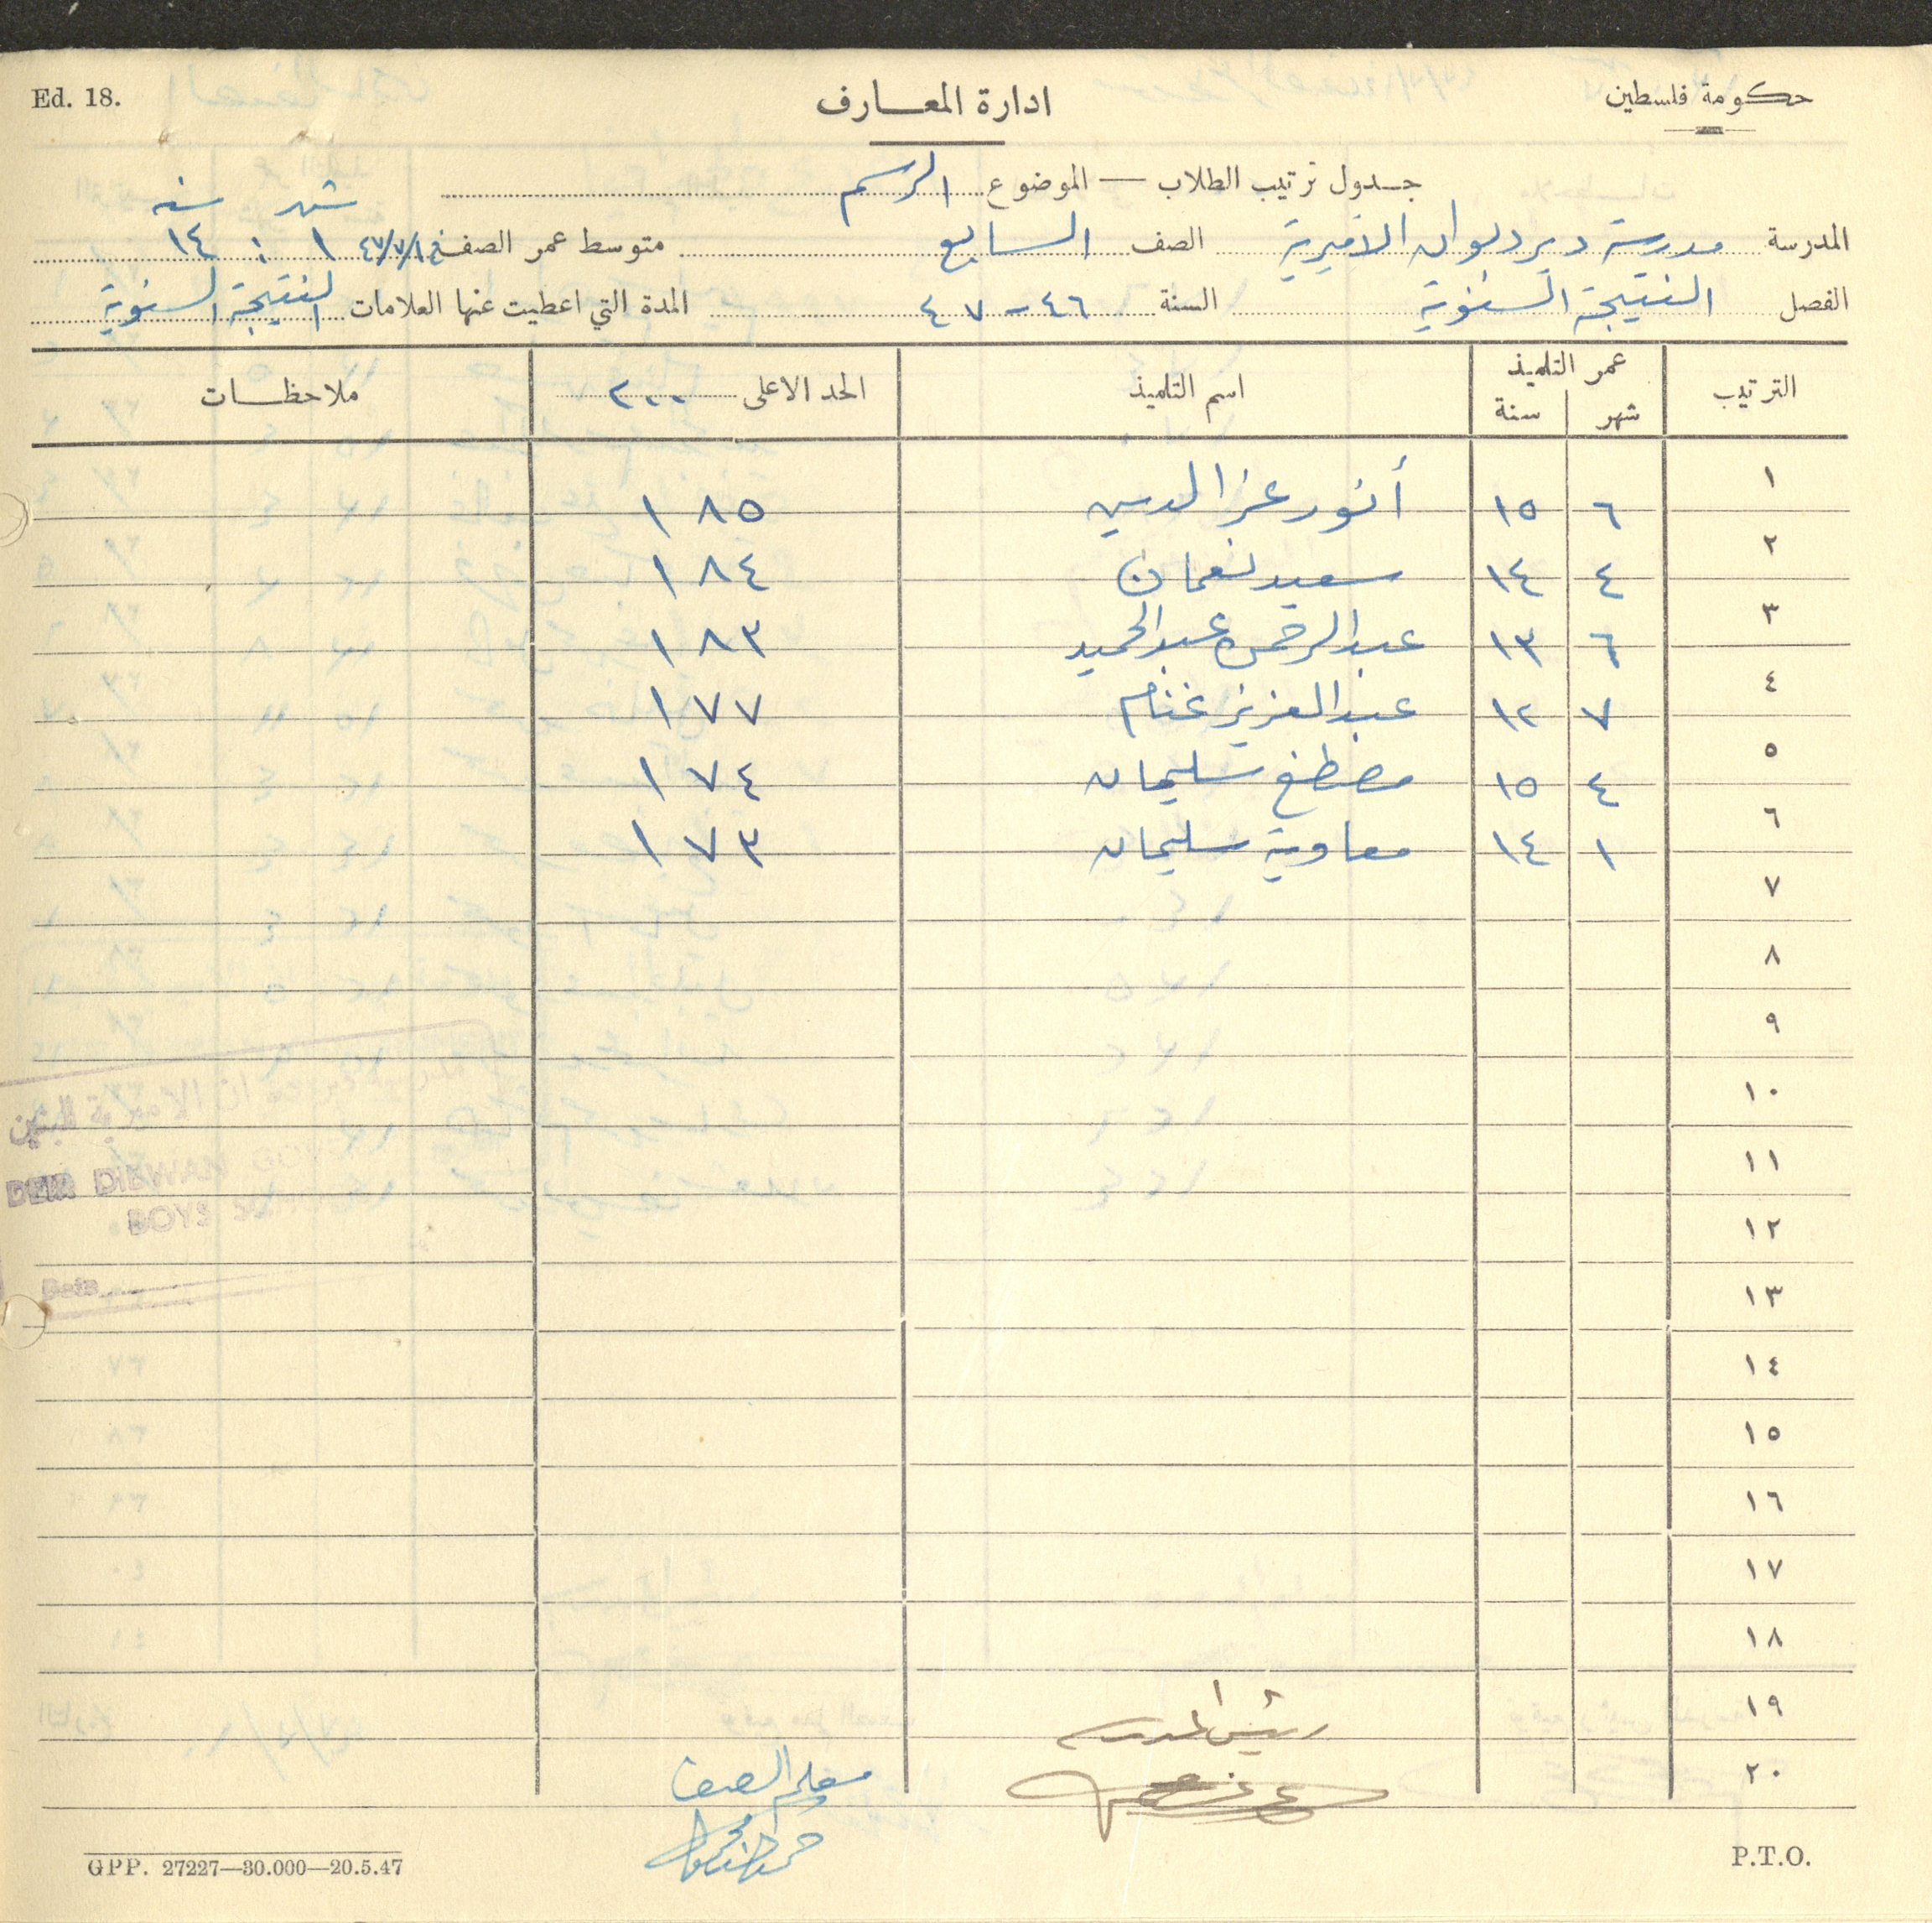 Ed. 18.
حكومة فلسطين
ادارة المعارف
جدول ترتيب الطلاب — الموضوع الرسم
شهر سنه
المدرسة مدرسة دير ديوان الاميرية الصف السابع متوسط عمر الصف في ٤٧/٧/١ ١ : ١٤
الفصل النتيجة السنوية السنة ٤٦ - ٤٧ المدة التي اعطيت عنها العلامات النتيجة السنوية
الترتيب عمر التلميذ شهر سنة اسم التلميذ الحد الاعلى ٢٠٠ ملاحظات
١ ٦ ١٥ أنور عز الدين ١٨٥
٢ ٤ ١٤ سعيد نعمان ١٨٤
٣ ٦ ١٣ عبد الرحمن عبد الحميد ١٨٣
٤ ٧ ١٢ عبد العزيز غنام ١٧٧
٥ ٤ ١٥ مصطفى سليمان ١٧٤
٦ ١ ١٤ معاوية سليمان ١٧٣
٧
٨
٩
١٠
١١
١٢
١٣
١٤
١٥
١٦
١٧
١٨
١٩ رئيس المدرسة
٢٠ معلم الصف
GPP. 27227—30.000—20.5.47
P.T.O.
DEIR DIBWAN
BOYS
Date